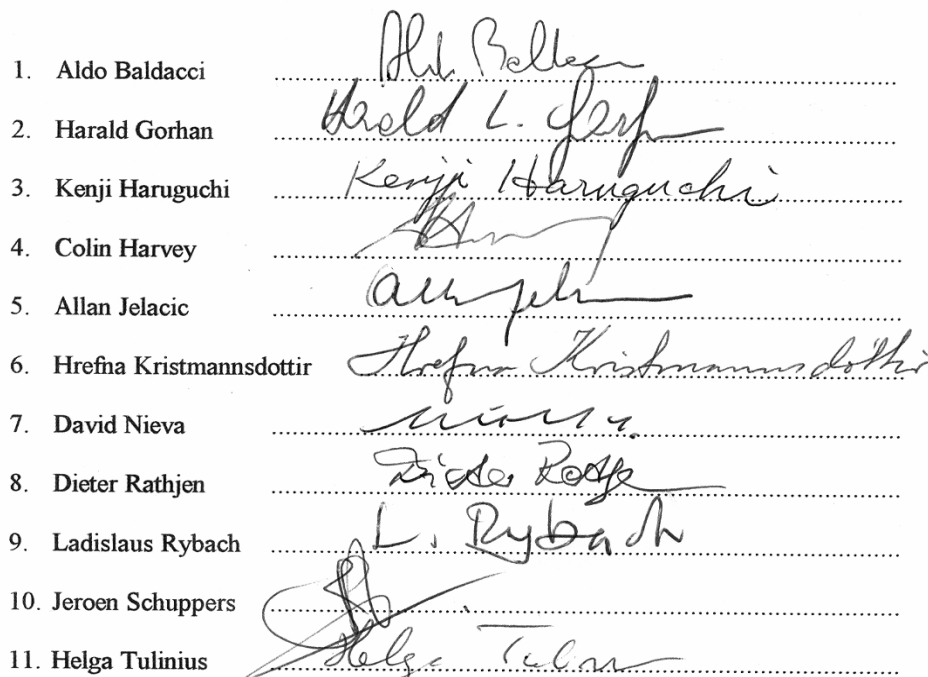 1. Aldo Baldacci
2. Harald Gorhan Harald L.
3. Kenji Haruguchi Kenji Haruguchi
4. Colin Harvey
5. Allan Jelacic
6. Hrefna Kristmannsdottir Hrefna Kristmannsdóttir
7. David Nieva
8. Dieter Rathjen Dieter
9. Ladislaus Rybach L. Rybach
10. Jeroen Schuppers
11. Helga Tulinius Helga